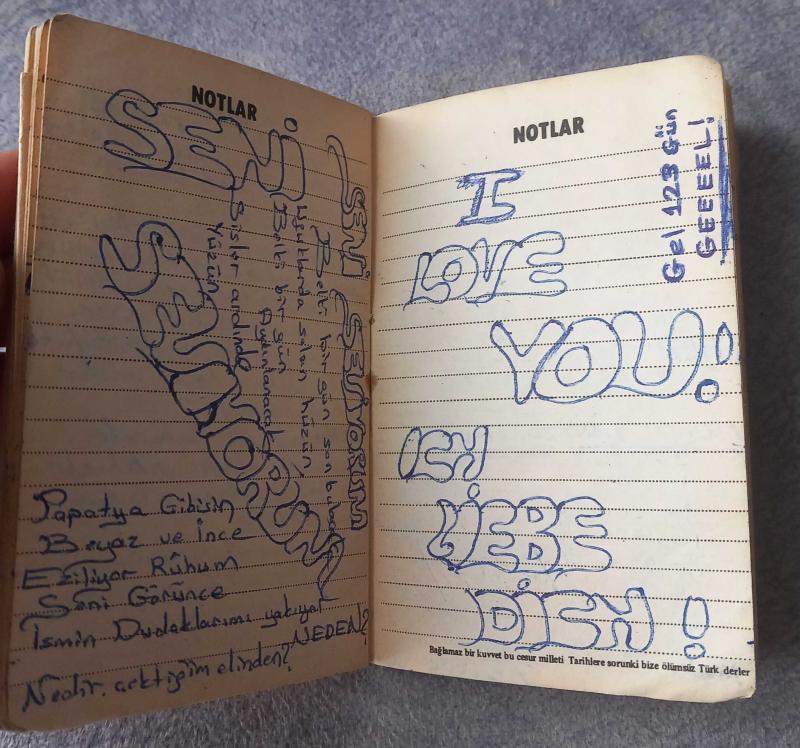 NOTLAR
SENİ
SEVİYORUM
SENİ SEVİYORUM
Belki bir gün son bulur
Ufuklarda solan hüzün,
Belki bir gün
Aydınlanacak
Sisler ardında
Yüzün
Papatya Gibisin
Beyaz ve İnce
Eziliyor Rûhum
Seni Görünce
İsmin Dudaklarımı yakıyor
NEDEN?
Nedir, çektiğim elinden?
NOTLAR
I
LOVE
YOU!
ICH
LİEBE
DİCH!
Gel 123 Gün
GEEEEL!
Bağlamaz bir kuvvet bu cesur milleti Tarihlere sorunki bize ölümsüz Türk derler